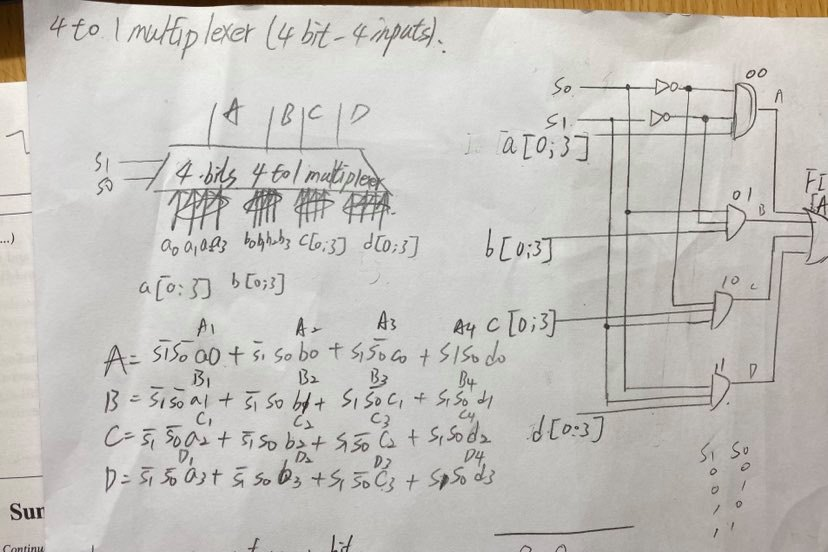 4 to 1 multiplexer (4 bit - 4 inputs).
A B C D
S1
S0
4-bits 4 to 1 multiplexer
a0 a1 a2 a3 b0 b1 b2 b3 c[0:3] d[0:3]
a[0:3] b[0:3]
A1 A2 A3 A4
A = S̅1S̅0 a0 + S̅1 S0 b0 + S1 S̅0 C0 + S1S0 d0
B1 B2 B3 B4
B = S̅1S̅0 a1 + S̅1 S0 b1 + S1 S̅0 C1 + S1S0 d1
C1 C2 C3 C4
C = S̅1 S̅0 a2 + S̅1 S0 b2 + S1 S̅0 C2 + S1 S0 d2
D1 D2 D3 D4
D = S̅1 S̅0 a3 + S̅1 S0 b3 + S1 S̅0 C3 + S1 S0 d3
S0
S1
a[0;3]
00
A
01
B
b[0;3]
10
C
C[0;3]
11
D
d[0:3]
S1 S0
0 0
0 1
1 0
1 1
...)
Sur
Continu
bit